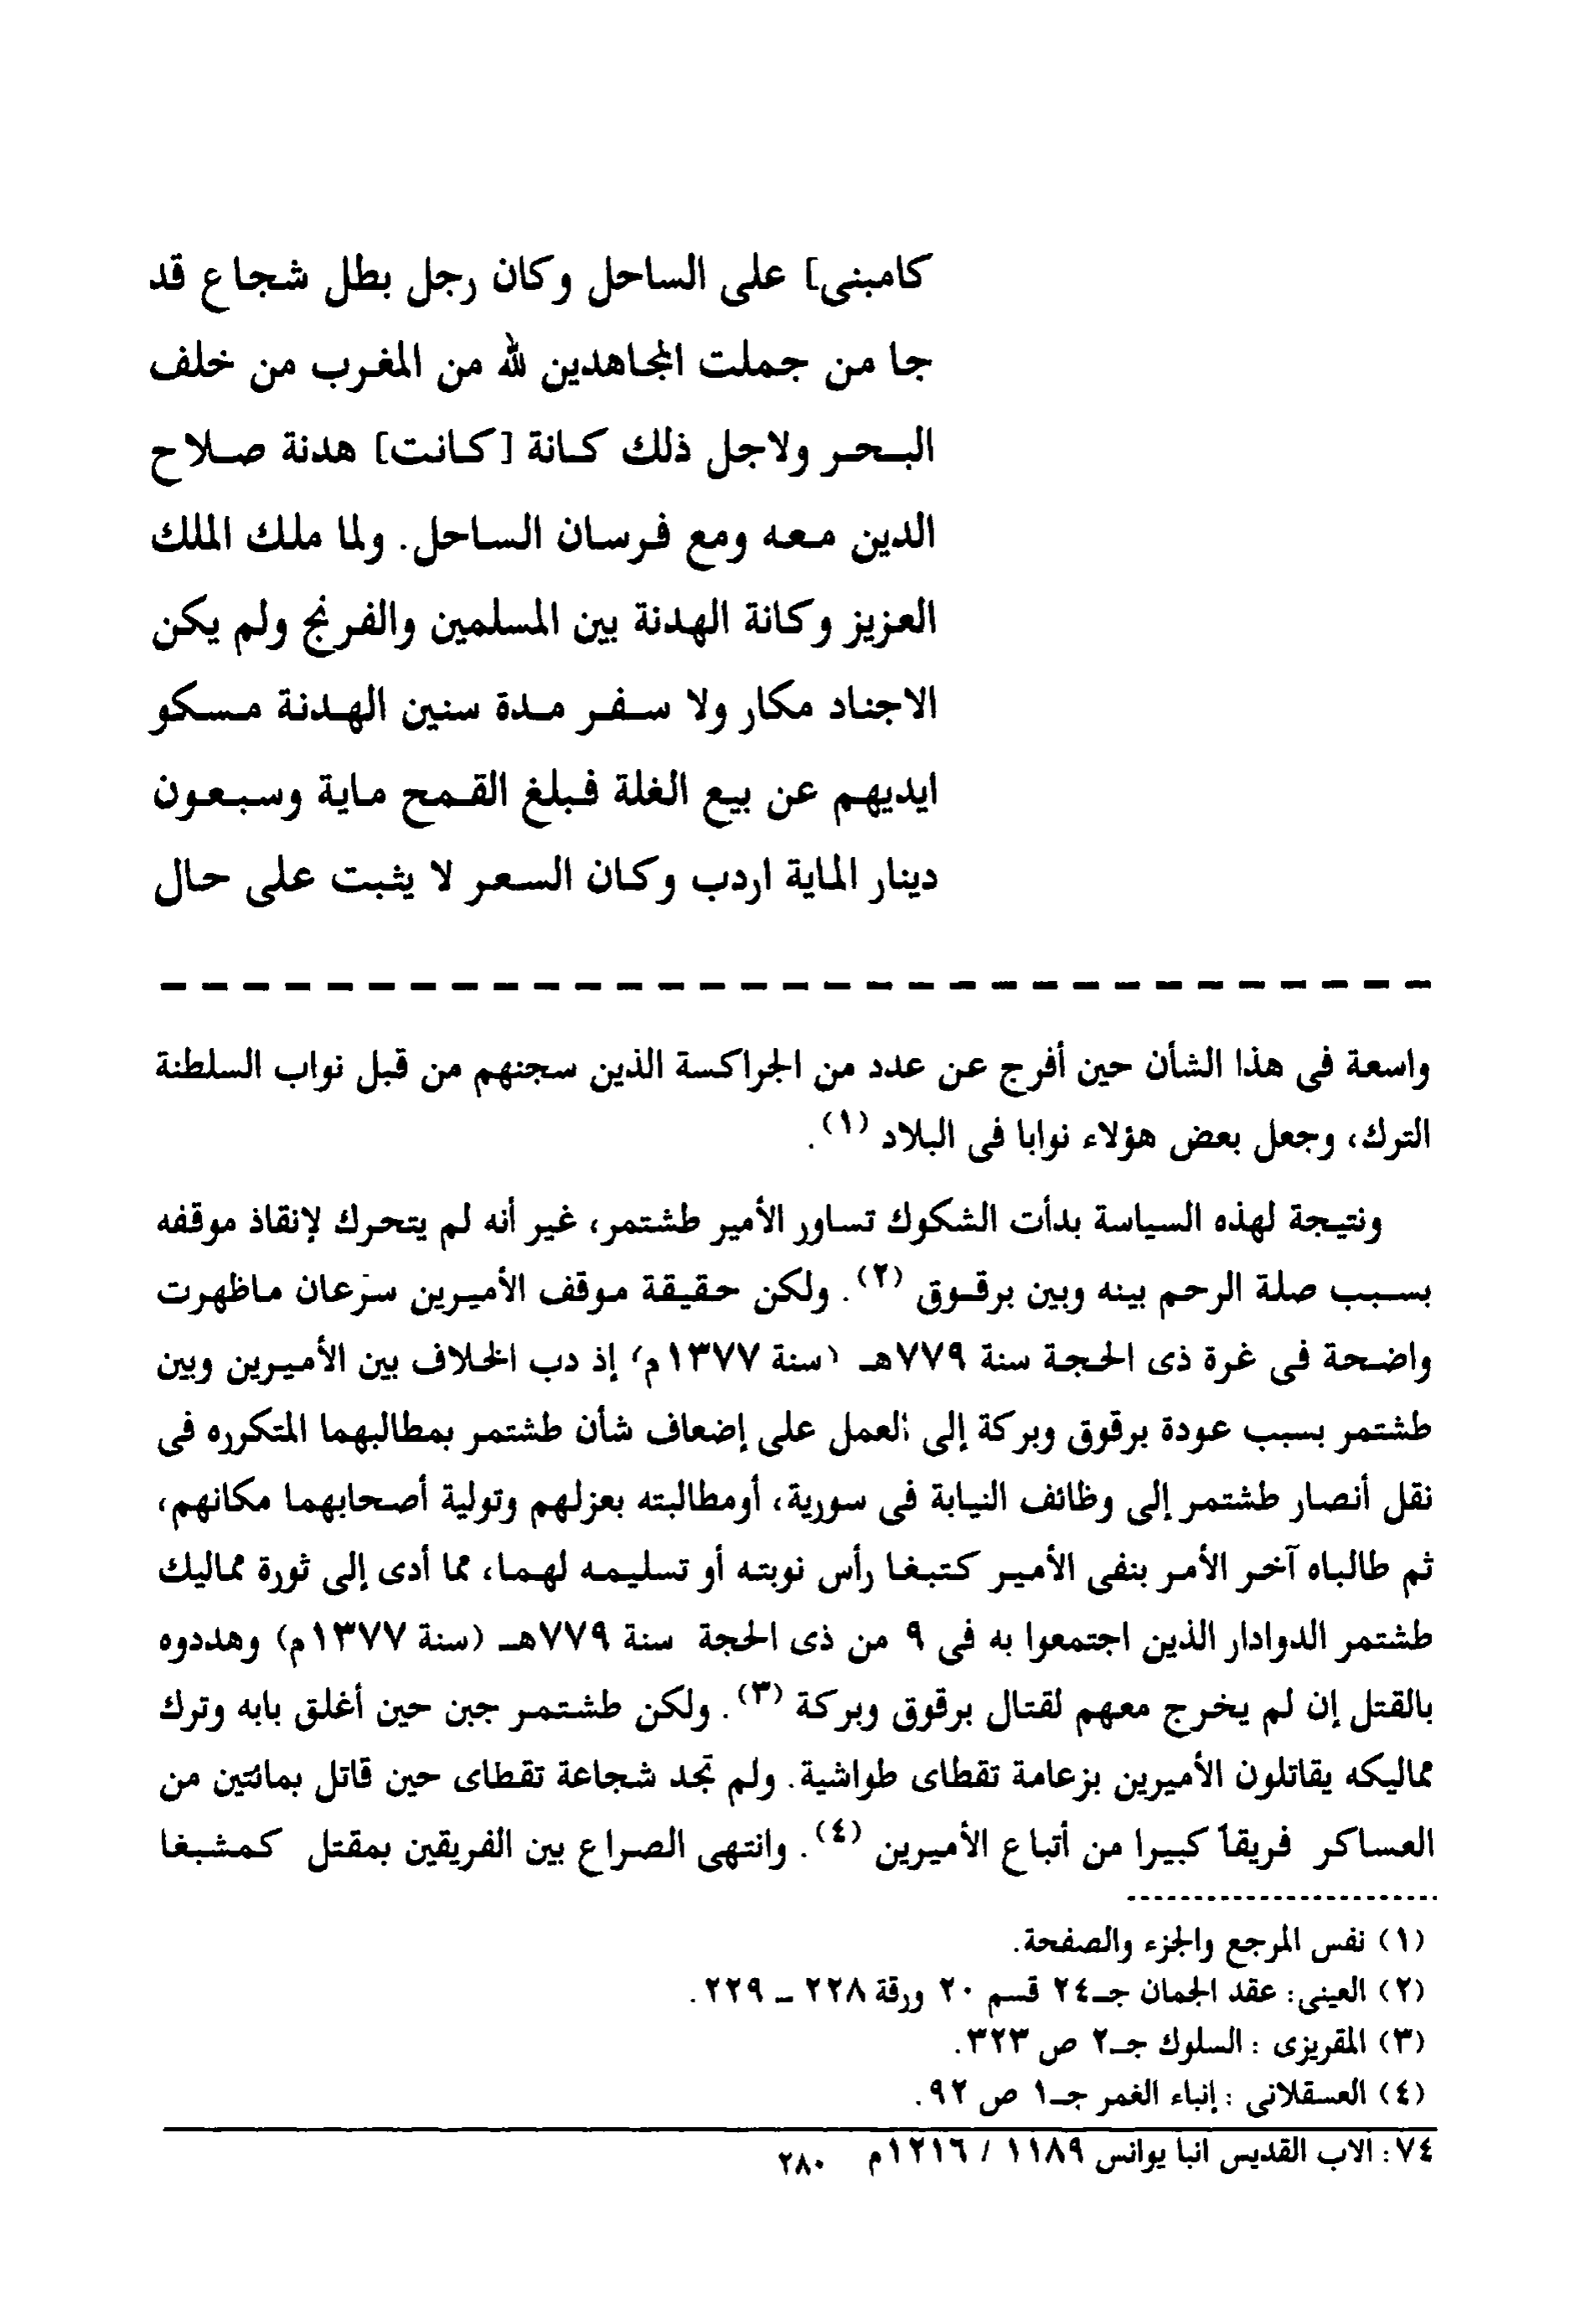 كامبنى] على الساحل وكان رجل بطل شجاع قد
جا من جملت المجاهدين لله من المغرب من خلف
البحر ولاجل ذلك كانة [كانت] هدنة صلاح
الدين معه ومع فرسان الساحل. ولما ملك الملك
العزيز وكانة الهدنة بين المسلمين والفرنج ولم يكن
الاجناد مكار ولا سفر مدة سنين الهدنة مسكو
ايديهم عن بيع الغلة فبلغ القمح ماية وسبعون
دينار الماية اردب وكان السعر لا يثبت على حال
واسعة فى هذا الشأن حين أفرج عن عدد من الجراكسة الذين سجنهم من قبل نواب السلطنة
الترك، وجعل بعض هؤلاء نوابا فى البلاد (١).
ونتيجة لهذه السياسة بدأت الشكوك تساور الأمير طشتمر، غير أنه لم يتحرك لإنقاذ موقفه
بسبب صلة الرحم بينه وبين برقوق (٢). ولكن حقيقة موقف الأميرين سرعان ماظهرت
واضحة فى غرة ذى الحجة سنة ٧٧٩هـ (سنة ١٣٧٧م) إذ دب الخلاف بين الأميرين وبين
طشتمر بسبب عودة برقوق وبركة إلى العمل على إضعاف شأن طشتمر بمطالبهما المتكرره فى
نقل أنصار طشتمر إلى وظائف النيابة فى سورية، أومطالبته بعزلهم وتولية أصحابهما مكانهم،
ثم طالباه آخر الأمر بنفى الأمير كتبغا رأس نوبته أو تسليمه لهما، مما أدى إلى ثورة مماليك
طشتمر الدوادار الذين اجتمعوا به فى ٩ من ذى الحجة سنة ٧٧٩هـ (سنة ١٣٧٧م) وهددوه
بالقتل إن لم يخرج معهم لقتال برقوق وبركة (٣). ولكن طشتمر جبن حين أغلق بابه وترك
مماليكه يقاتلون الأميرين بزعامة تقطاى طواشية. ولم تجد شجاعة تقطاى حين قاتل بمائتين من
العساكر فريقاً كبيرا من أتباع الأميرين (٤). وانتهى الصراع بين الفريقين بمقتل كمشبغا
(١) نفس المرجع والجزء والصفحة.
(٢) العينى: عقد الجمان جـ٢٤ قسم ٢٠ ورقة ٢٢٨ ـ ٢٢٩.
(٣) المقريزى : السلوك جـ٢ ص ٣٢٣.
(٤) العسقلانى : إنباء الغمر جـ١ ص ٩٢.
٧٤: الاب القديس انبا يوانس ١١٨٩ / ١٢١٦م ٢٨٠